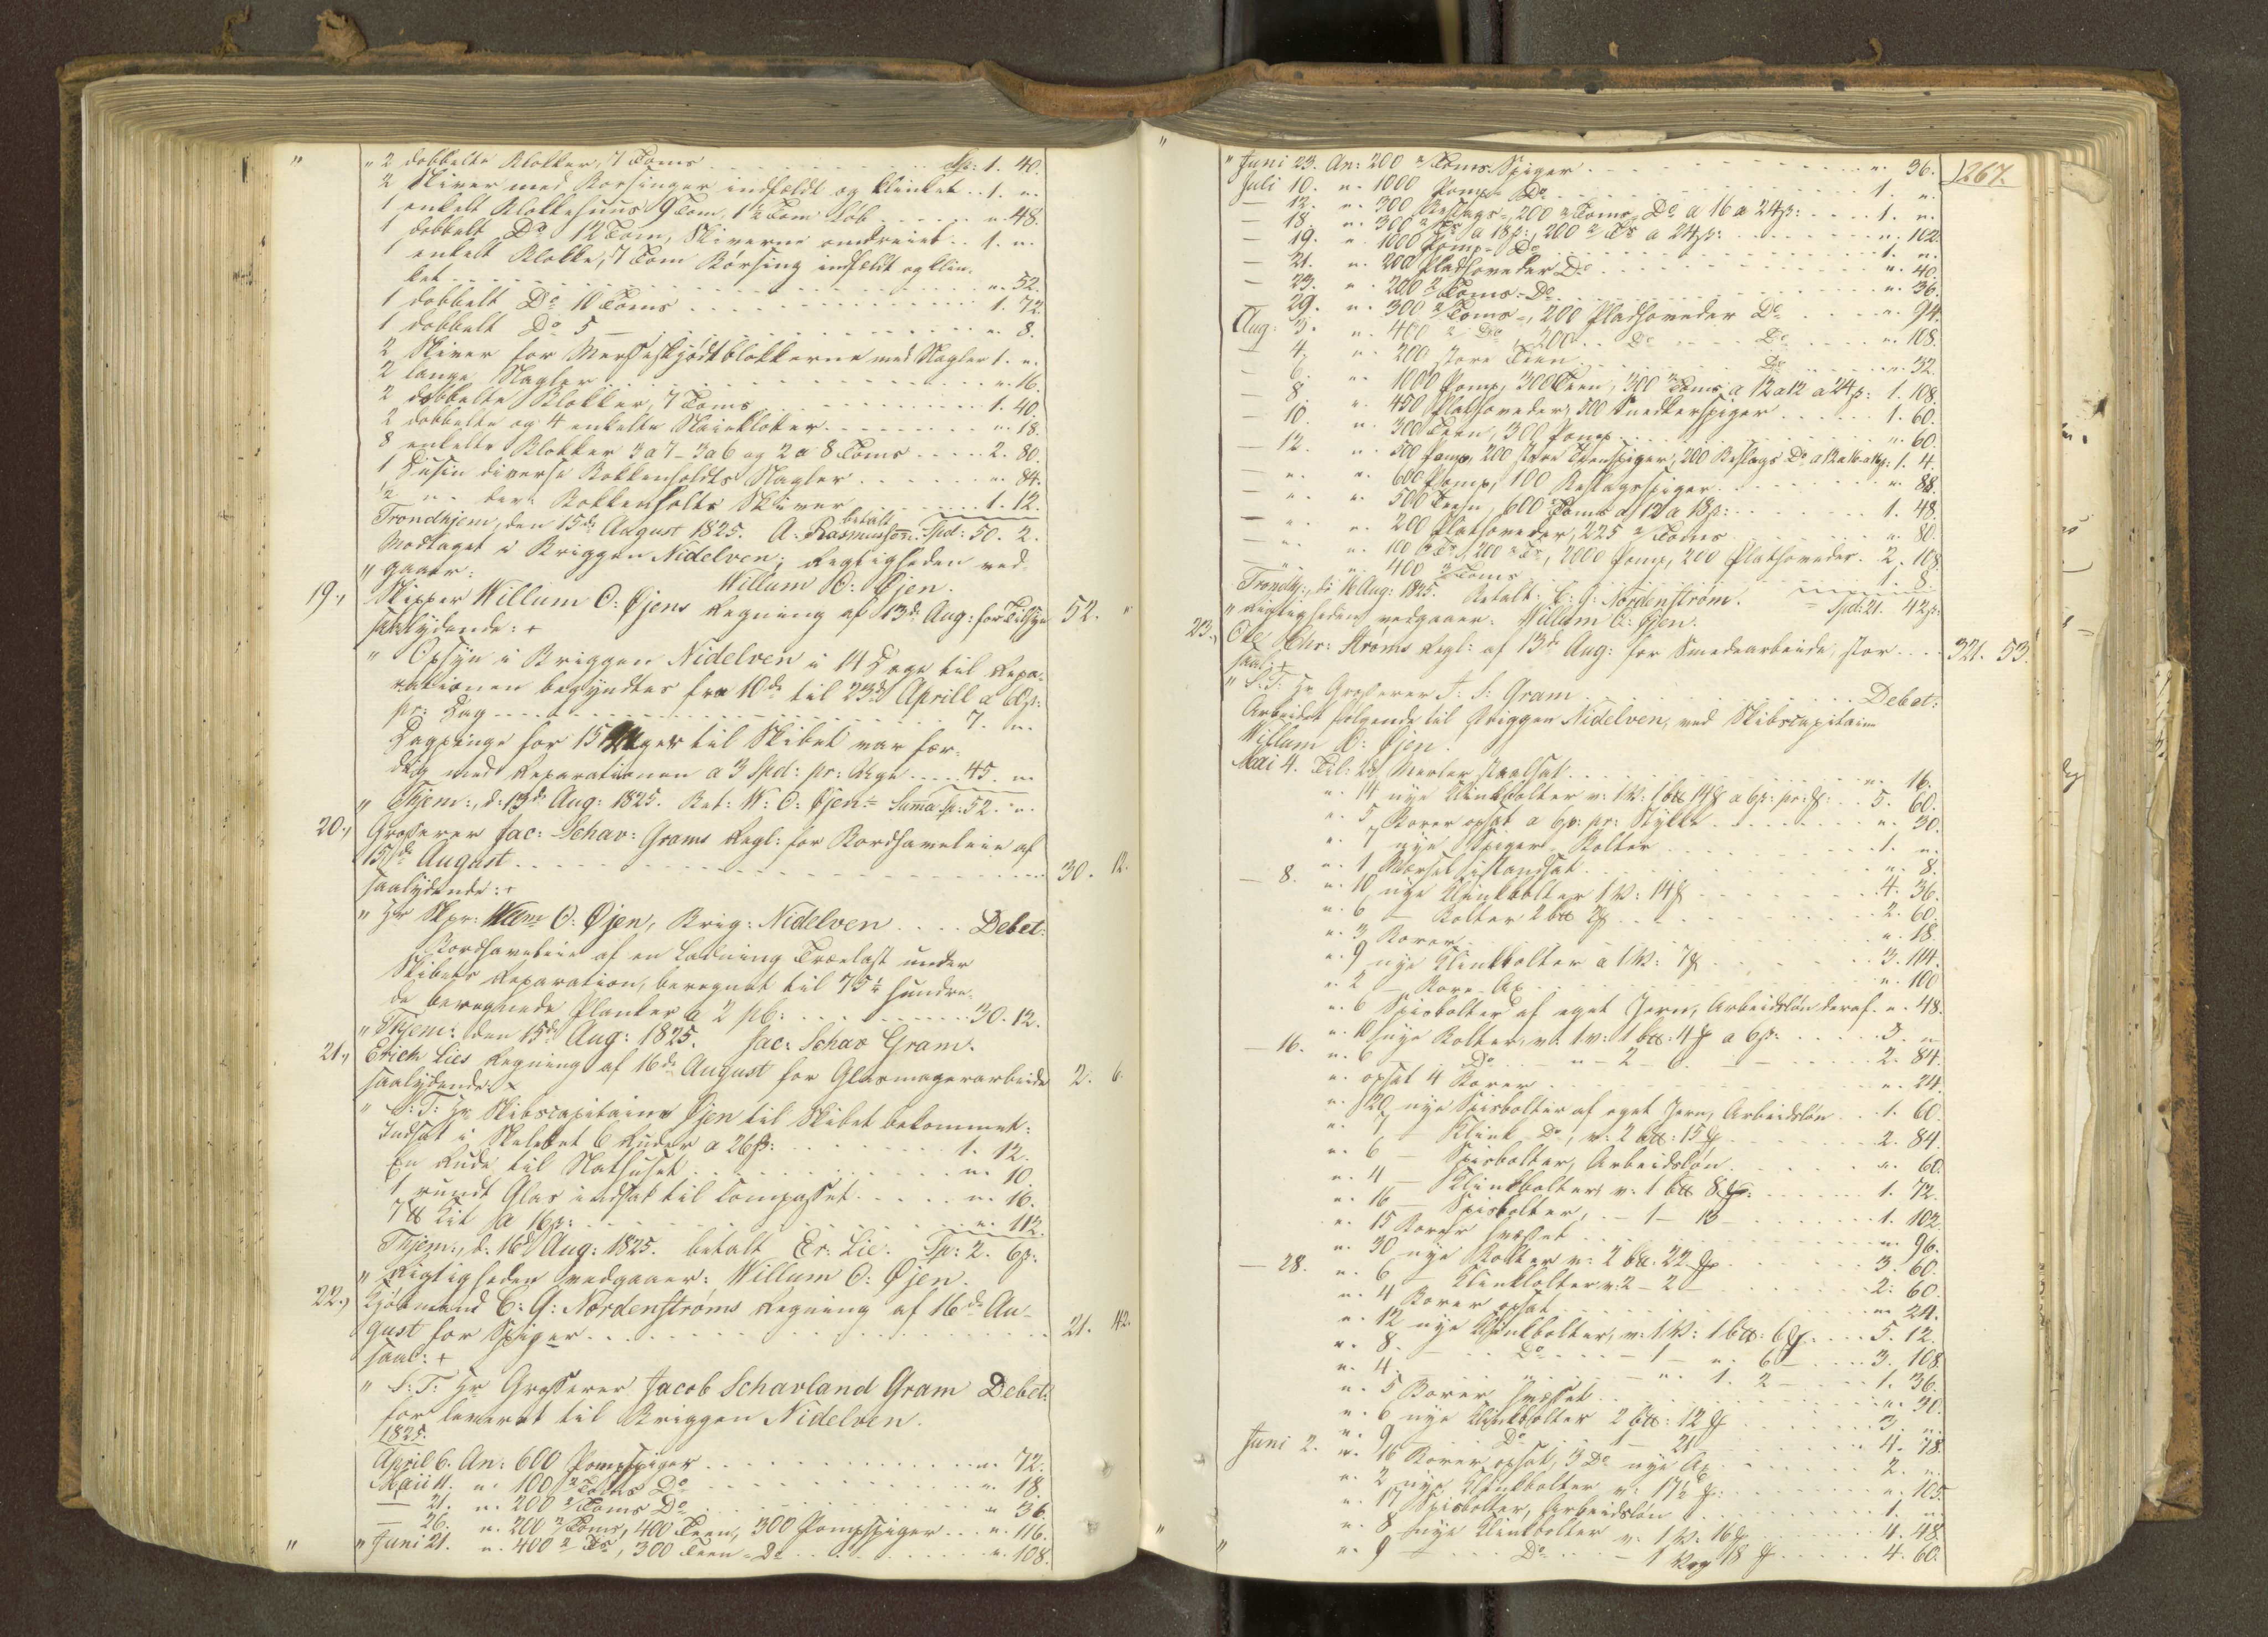 " " 2 dobbelte Blokker, 7 Toms . . . Sp: 1. 40.
2 Skiver med Borsinger indfældt og klinket . . 1. "
1 enkelt Blokkehuus 9 Tom, 1½ Tom Løb . . . " 48.
1 dobbelt Do 12 Tom, Skiverne omdreiet . . 1. "
1 enkelt Blokke, 7 Tom Børsing indfældt og klin-
ket . . . " 52.
1 dobbelt Do 10 Toms . . . 1. 72.
1 dobbelt Do 5 — . . . " 8.
2 Skiver for Merseskjødtblokkerne med Nagler 1. "
2 lange Nagler . . . " 16.
2 dobbelte Blokker, 7 Toms . . . 1. 40.
2 dobbelte og 4 enkelte . . . " 18.
8 enkelte Blokker 3 a 7 - 3 a 6 og 2 a 8 Toms . . . 2. 80.
1 Dusin diverse Bokkenholdts Nagler . . . " 84.
½ " dert Bokkenholts Skiver . . . 1. 12.
Trondhjem, den 15de August 1825. A. Rasmusson. betalt Spd: 50. 2.
Modtaget i Briggen Nidelven; Rigtigheden ved-
" gaaer: Willum O: Øjen.
19., Skipper Willum O: Øjens Regning af 13de Aug: for Tilsyn 52. "
saalydende: +
" Opsyn i Briggen Nidelven i 14 Dage til Repa-
rationen begyndtes fra 10de til 23de Aprill a 60 s:
pr: Dag . . . 7. "
Dagpenge for 15 Uger til Skibet var fær-
dig med Reparationen a 3 Spd: pr: Uge . . . 45. "
" Thjem:, d: 13de Aug: 1825. Bet: W: O: Øjen = Suma sp: 52. "
20., Grosserer Jac: Schav: Grams Regl: for Bordhaveleie af
15de August . . . 30. 12.
saalydende: +
" Hr Skpr: Wllm O: Øjen, Brig: Nidelven . . . Debet:
Bordhaveleie af en Ladning Trælast under
Skibets Reparation, beregnet til 75½ hundre-
de beregnede Planker a 2 . . . 30. 12.
" Thjem: den 15de Aug: 1825. Jac: Schav Gram.
21., Erich Lies Regning af 16de August for Glasmagerarbeide 2. 6.
saalydende: +
" S: T: Hr Skibscapitaine Øjen til Skibet bekommet:
Indsat i Skilectet 6 Ruder a 26 s: . . . 1. 12.
En Rude til Nathuset . . . " 10.
1 rundt Glas indsat til Compasset . . . " 16.
7 ℔ Kit a 16 s: . . . " 112.
Thjem:, d: 16de Aug: 1825. betalt Er: Lie. Sp: 2. 6 s:
" Rigtigheden vedgaaer: Willum O: Øjen.
22., Kjøbmand C: G: Nordenstrøms Regning af 16de Au-
gust for Spiger . . . 21. 42.
saal: +
" S: T: Hr Grosserer Jacob Schavland Gram Debet:
for leveret til Briggen Nidelven.
1825.
April 6. An: 600 Pompspiger . . . " 72.
Maii 11. " 100 2/Toms Do . . . " 18.
— 21. " 200 2/Toms Do . . . " 36.
— 26. " 200 2/Toms, 400 Teen, 300 Pompspiger . . . " 116.
" " Juni 21. " 400 2 To, 300 Teen = Do . . . " 108.
267.
" " Juni 23. An: 200 2/Toms Spiger . . . " 36.
Juli 10. " 1000 Pomp = Do . . . 1. "
— 12. " 300 Beslags =, 200 2 Toms Do a 16 a 24 s: . . . 1. "
— 18. " 300 2/To a 18 s:, 200 2/To a 24 s: . . . " 102.
— 19. " 1000 Pomp = Do . . . 1. "
— 21. " 200 Pladhoveder Do . . . " 40.
— 23. " 200 2/Toms = Do . . . " 36.
— 29. " 300 2/Toms =, 200 Pladhoveder Do . . . " 94.
Aug: 3. " 400 2 Do, 200 . . Do . . . Do . . . " 108.
— 4. " 200 store Teen . . . Do . . . " 32.
— 6. " 1000 Pomp, 300 Teen, 300 2 Toms a 12 a 12 a 24 s: 1. 108.
— 8. " 450 Plathoveder, 500 Snedkerspiger . . . 1. 60.
— 10. " 300 Teen, 300 Pomp . . . " 60.
— 12. " 500 Pomp, 200 store Teenspiger, 200 Beslags Do a 12 a 16 a 16 s: 1. 4.
— " " 600 Pomp, 100 Beslagsspiger . . . " 88.
— " " 500 Teen, 600 Toms a 12 a 18 s: . . . 1. 48.
— " " 200 Plathoveder, 225 2/Toms . . . " 80.
— " " 100 To, 200 To, 2000 Pomp, 200 Plathoveder . 2. 108.
— " " 400 2/Toms . . . 1. 8.
Trondhj:, d: 16 Aug: 1825. Betalt: C: G: Nordenstrøm. = Spd: 21. 42 s:
" Rigtigheden vedgaaer: Willum O: Øjen.
23., Ole Chr: Strøms Regl: af 13de Aug: for Smedearbeide, stor . . . 321. 53.
saal: +
" S: T: Hr Grosserer J: S: Gram . . . Debet:
Arbeidet følgende til Briggen Nidelven, ved Skibscapitain
Willum O: Øjen.
Mai 4. Til: 23 Merler staalsat . . . " 16.
" 14 nye Klinkbolter v: 1 V: 1 b℔ 14 ℔ a 6 s: pr: ℔: . . 5. 60.
" 5 Borer opsat a 6 s: pr: Stykke . . . " 30.
" 7 nye Spiger Bolter . . . 1. "
" 1 Mersel istandsat . . . " 8.
— 8. " 10 nye Klinkbolter 1 V: 14 ℔ . . . 4. 36.
" 6 — Bolter 2 b℔ 2 ℔ . . . 2. 60.
" 3 Borer . . . " 18.
" 9 nye Klinkbolter a 1 V: 7 ℔ . . . 3. 114.
" 2 — Bore-Ax . . . " 100.
" 6 Spisbolter af eget Jern, Arbeidsløn deraf . " 48.
— 16. " 10 nye Bolter, v: 1 v: 1 b℔: 4 ℔ a 6 s: . . . 5. "
" 6 — Do " — 2 — 6. — . . . 2. 84.
" opsat 4 Borer . . . " 24.
" 20 nye Spisbolter af eget Jern, Arbeidsløn . . 1. 60.
" 7 — Klink Do, v: 2 b℔: 15 ℔ . . . 2. 84.
" 6 — Spisbolter, Arbeidsløn . . . " 60.
" 4 — Klinkbolter v: 1 b℔ 8 ℔: . . . 1. 72.
" 16 — Spisbolter, — 1 — 13 — . . . 1. 102.
" 15 Borer hvæsset . . . " 96.
" 30 nye Bolter v: 2 b℔. 22 ℔ . . . 3. 60.
— 28. " 6 — Klinkbolter v: 2 — 2 — . . . 2. 60.
" 4 Borer opsat . . . " 24.
" 12 nye Klinkbolter, v: 1 V: 1 b℔: 6 ℔ . . . 5. 12.
" 8. — Do . . — 1 — " 6 — . . . 3. 108.
" 4. — " — " 1. 2 — . . . 1. 36.
" 5 Borer hvæsset . . . " 30.
" 6 nye Klinkbolter 2 b℔: 12 ℔ . . . 3. "
" 9 — Do — 1 — 21 . . . 4. 78.
Juni 2. " 16 Borer opsat, 3 Do nye Ax . . . 2. "
" 2 nye Klinkbolter v: 17½ ℔: . . . " 105.
" 17 Spisbolter, Arbeidsløn . . . 1. "
" 8 nye Klinkbolter v: 1 V: 16 ℔ . . . 4. 48.
" " 9 — Do — 1 Vog 18 ℔ . . . 4. 60.